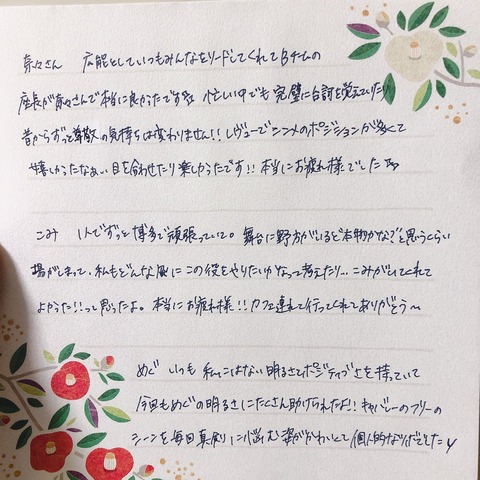 奈々さん 広能としていつもみんなをリードしてくれてBチームの
座長が奈々さんで本当に良かったです☆ 忙しい中でも完璧に台詞を覚えていたり
昔からずっと尊敬の気持ちは変わりません!! レヴューでシンメのポジションが多くて
嬉しかったなぁ 目を合わせたり楽しかったです!! 本当にお疲れ様でした
こみ 1人でずっと博多で頑張っていて。舞台に野方がいるぞ本物かな?と思うくらい
場がしまって、私もどんな風にこの役をやりたいかなって考えたり… こみがいてくれて
よかった!!って思ったよ。本当にお疲れ様!! カフェ連れて行ってくれてありがとう〜
めぐ いつも私にはない明るさとポジティブさを持っていて
今回もめぐの明るさにたくさん助けられたよ!! キャバレーのフリーの
シーンを毎回真剣に悩む姿がかわいくて個人的なツボでした